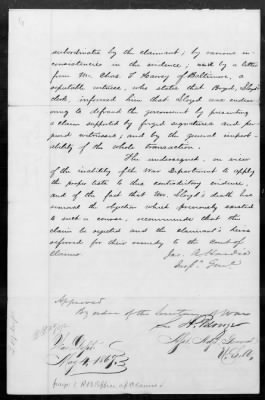 subordinates by the claimant; by various in-
consistencies in the evidence; by a letter
from Mr. Chas. T. Harvey of Baltimore, a
reputable witness, who states that Boyd, Lloyd's
clerk, informed him that Lloyd was endeav-
oring to defraud the government by presenting
a claim supported by forged signatures and per-
jured witnesses; and by the general improb-
ability of the whole transaction.
The undersigned, in view
of the inability of the War Department to
apply the proper tests to this contradictory evidence,
and of the fact that Mr. Lloyd's death has
removed the objection which previously existed
to such a course, recommends that the
claim be rejected and the claimant's heirs
referred for their remedy to the Court of
Claims.
Jas. A. Hardie
Insp'r Gen'l
Approved
By order of the Secretary of War
War Dep't
May 1867